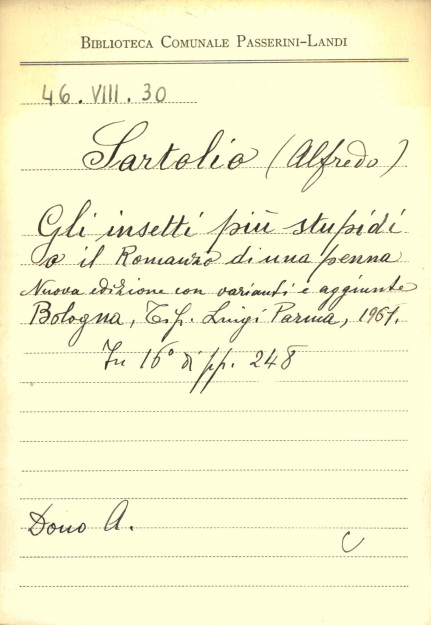 BIBLIOTECA COMUNALE PASSERINI-LANDI
46. VIII. 30
Sartolio (Alfredo)
Gli insetti più stupidi
o il Romanzo di una penna
Nuova edizione con varianti e aggiunte
Bologna, Tip. Luigi Parma, 1961.
In 16° di pp. 248
Dono A.
C